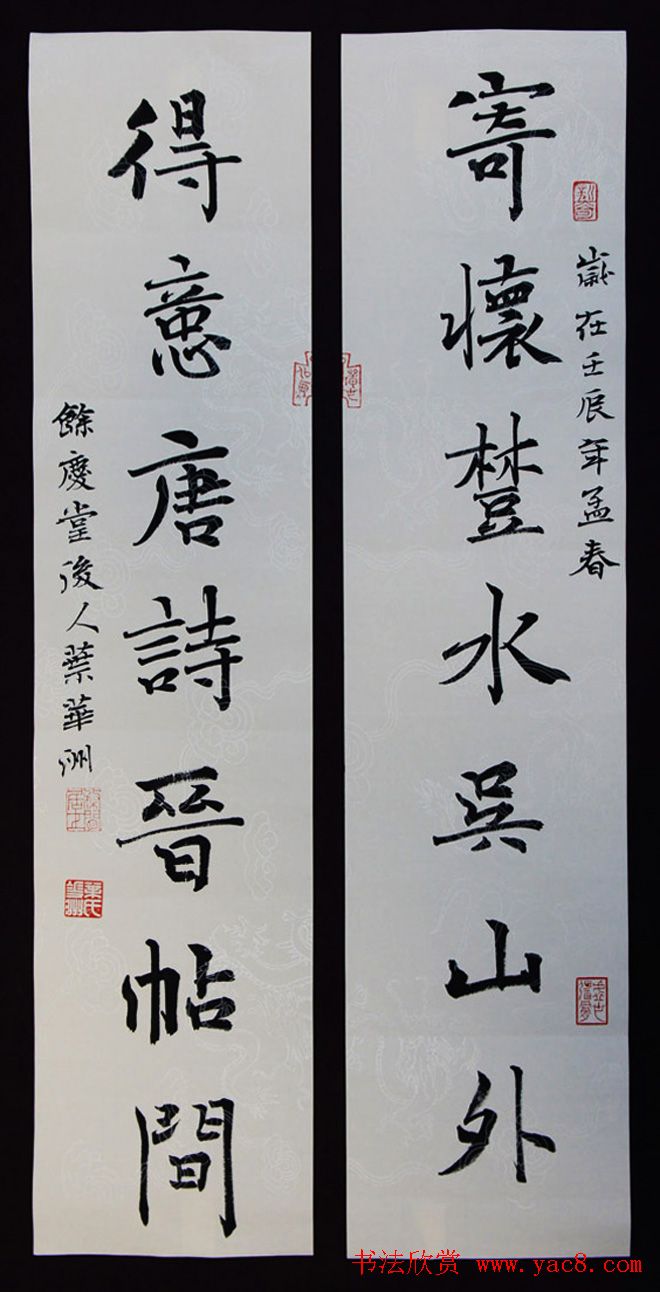 寄懷楚水吳山外
歲在壬辰年孟春
得意唐詩晉帖間
餘慶堂後人華洲
书法欣赏 www.yac8.com